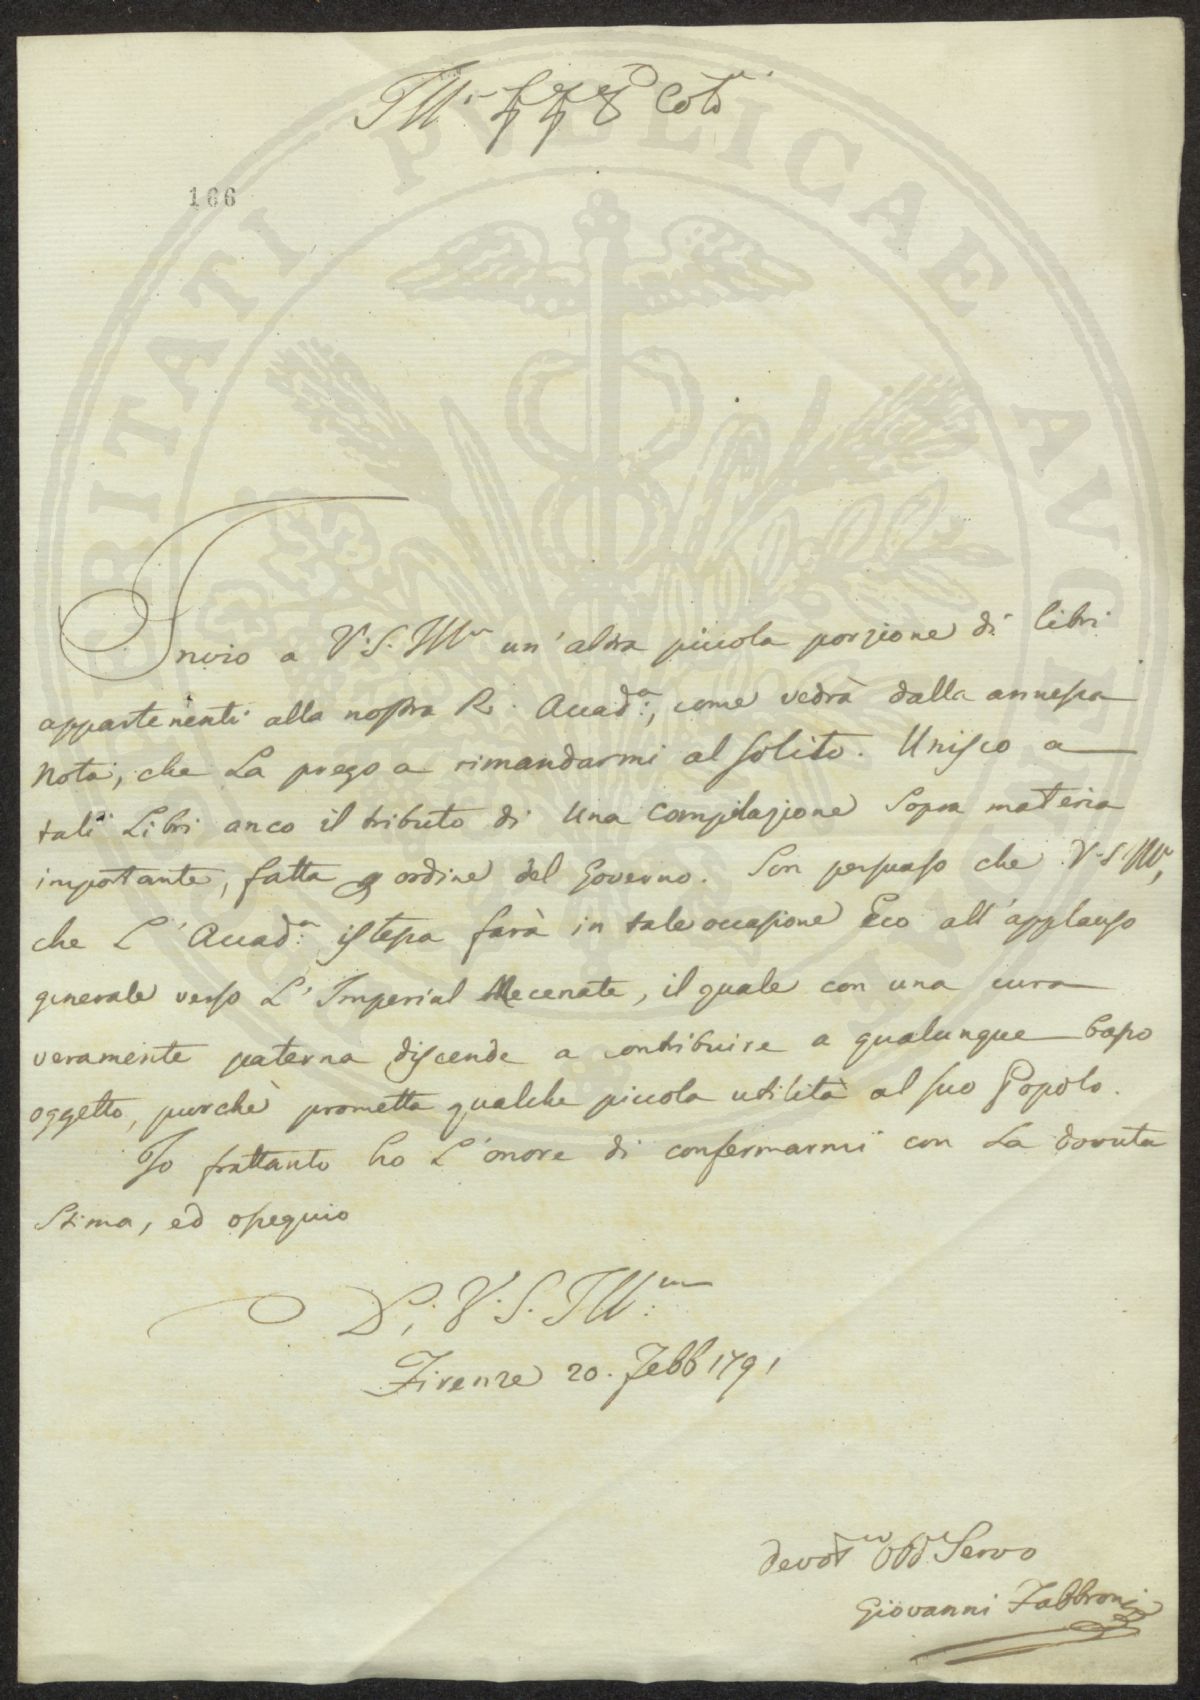 Ill.º Sig.e Sig.e P.ne Col.mo
166
Invio a V: S. Ill.ma un' altra piccola porzione di libri
appartenenti alla nostra R. Accad.a:, come vedrà dalla annessa
Nota, che La prego a rimandarmi al solito. Unisco a
tali Libri anco il tributo di Una Compilazione Sopra materia
importante, fatta per ordine del Governo. Son persuaso che V. S. Ill.ma,
che L' Accad.a: istessa farà in tale occasione Eco all' applauso
generale verso L' Imperial Mecenate, il quale con una cura
veramente paterna discende a contribuire a qualunque basso
oggetto, purchè prometta qualche piccola utilità al suo Popolo.
Io frattanto ho L' onore di confermarmi con La dovuta
Stima, ed ossequio
D: V: S. Ill:ma
Firenze 20. Febb 1791
devot.mo Obb.mo Servo
Giovanni Fabbroni
PROSPERITATI PVBLICAE AVGENDAE